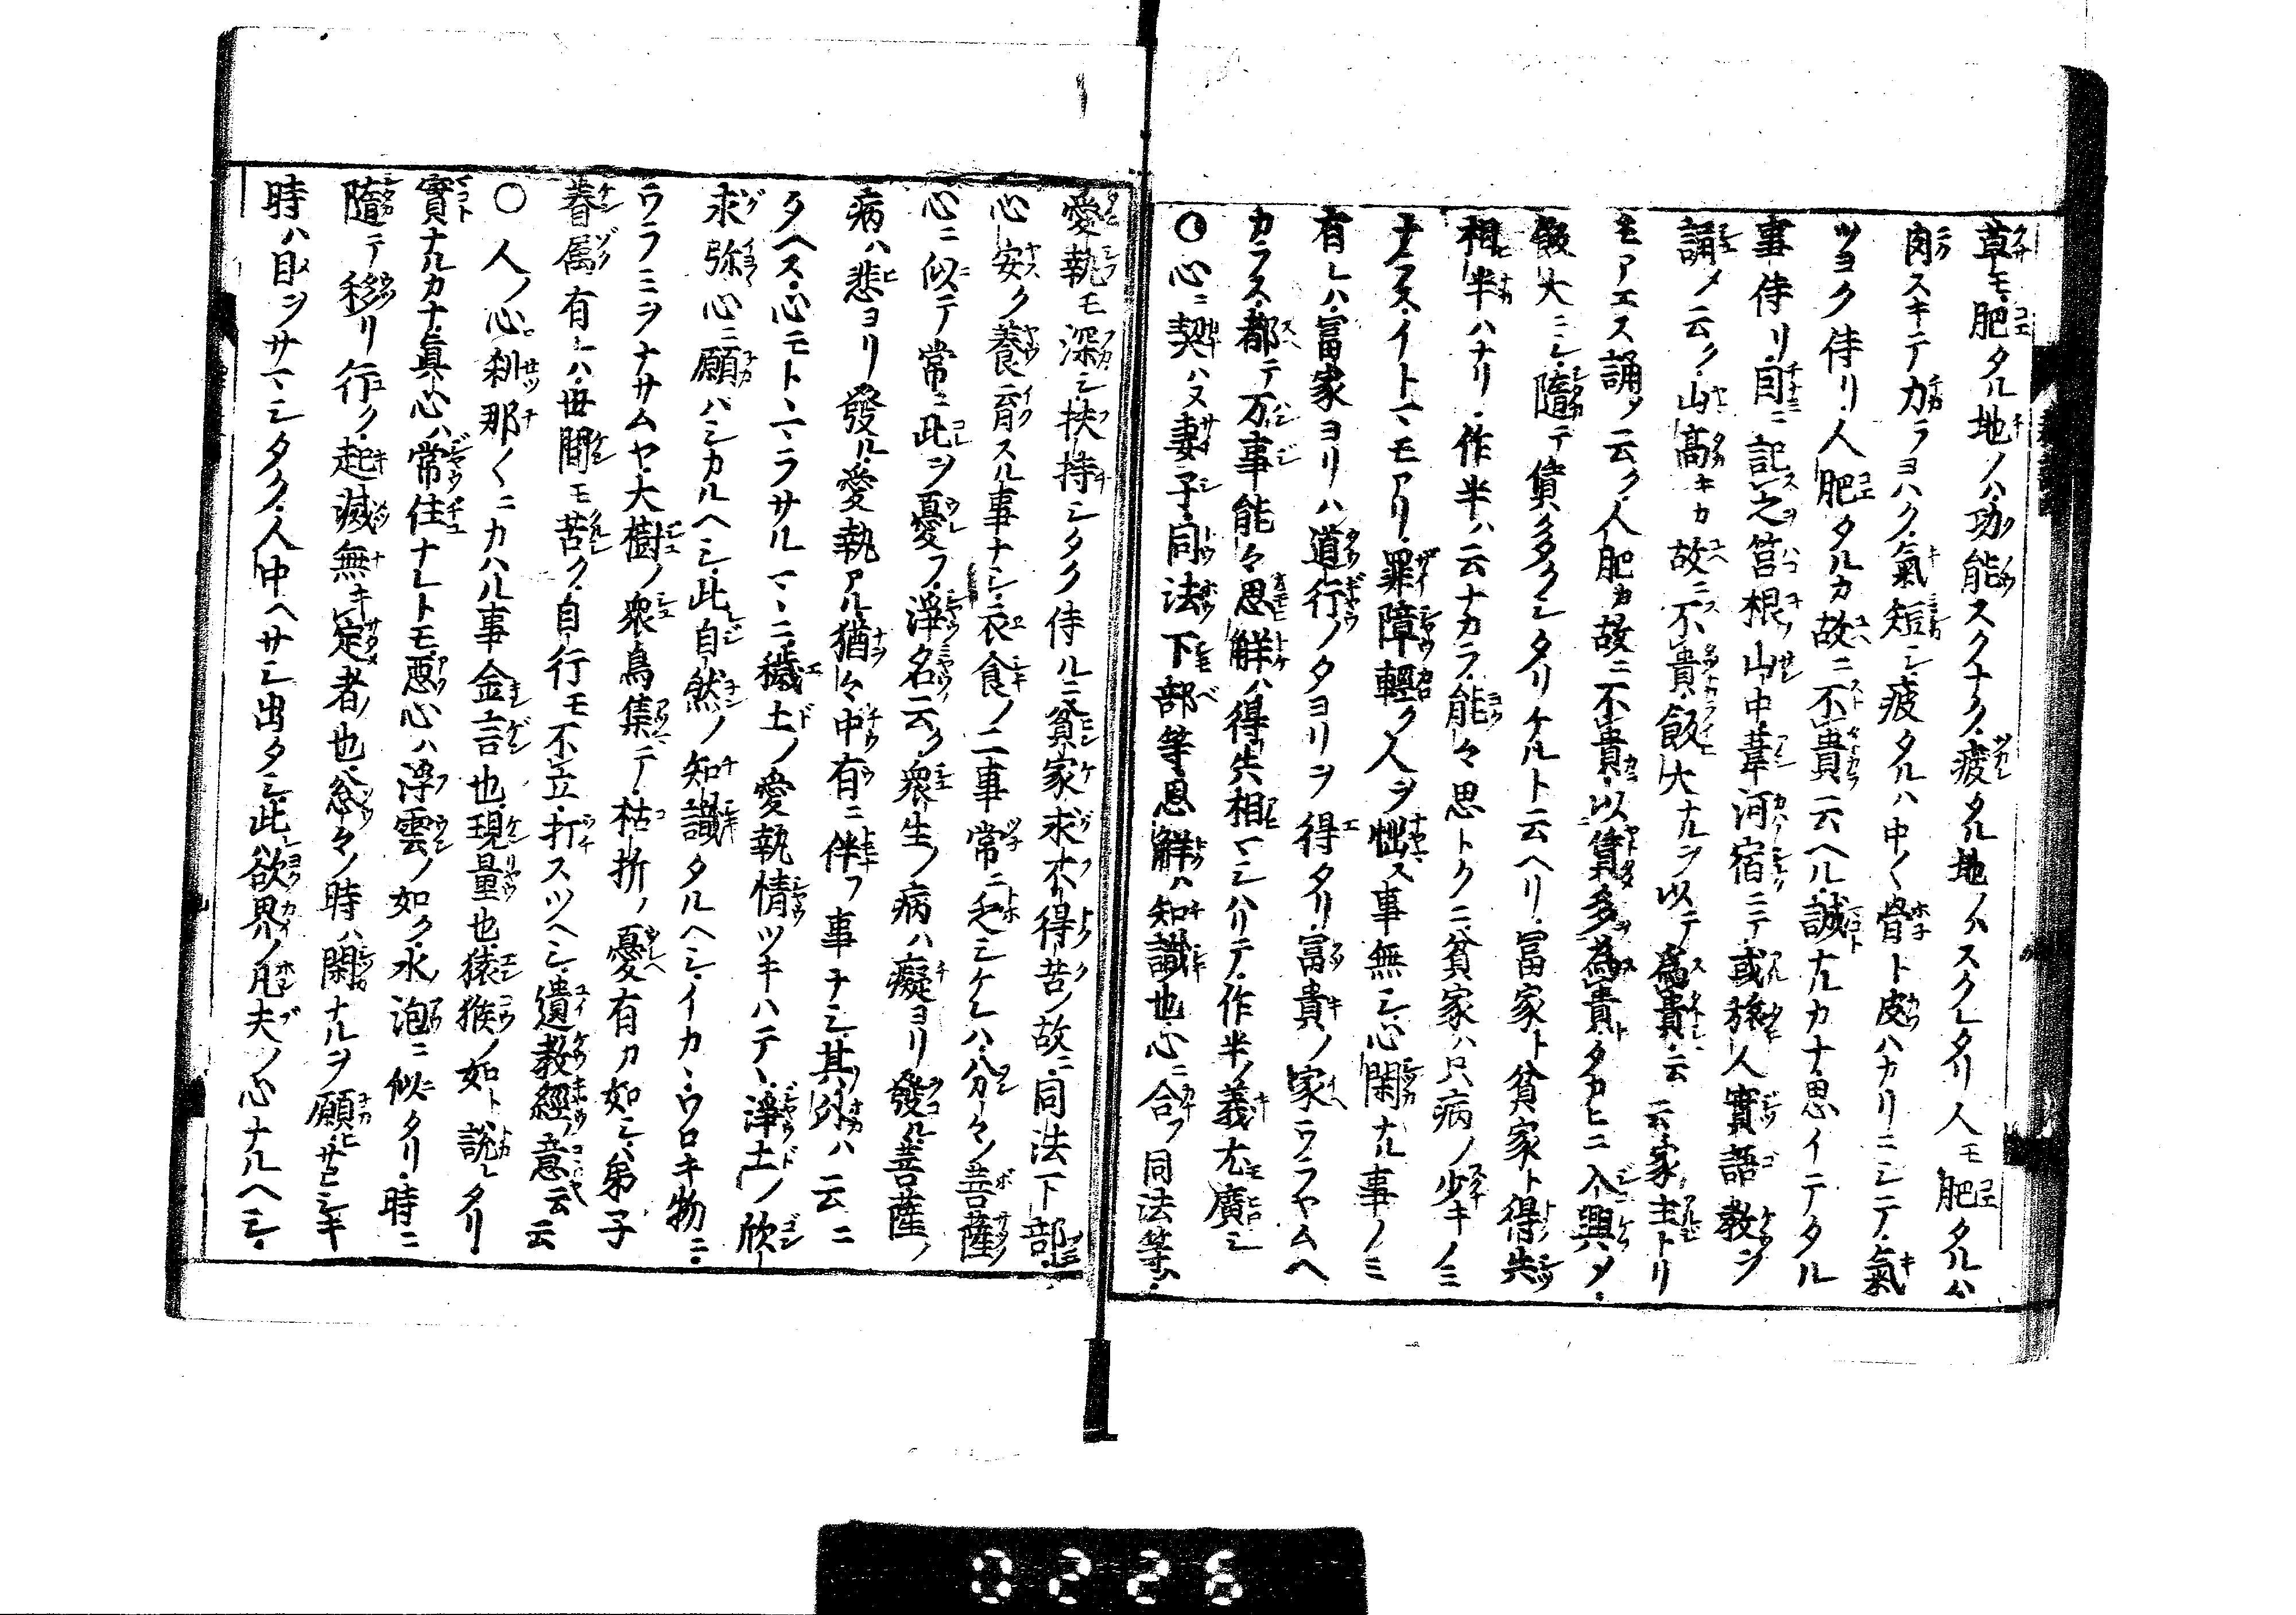 草モ肥タル地ノハ功能スクナク疲タル地ノハスクレタリ人モ肥タルハ
肉スキテ力ラヨハク氣短シ疲タルハ中〱骨ト皮ハカリニシテ氣
ツヨク侍リ人肥タルカ故ニ不貴云ヘル誠ナルカナ思イテタル
事侍リ自ニ記之筥根ノ山中葦河宿ニテ或旅人實語教ヲ
誦メ云ク山高キカ故ニ不貴飯大ナルヲ以テ為貴云云家主トリ
モアエス誦メ云ク人肥カ故ニ不貴以貨多為貴タカヒニ入興メ
飯大ニシ隨テ貨多クシタリケルト云ヘリ冨家ト貧家ト得失
相半ハナリ作半ハ云ナカラ能々思トクニ貧家ハ只病ノ少キノミ
ナラス イトマモアリ罪障輕ク人ヲ惱ス事無シ心閑ナル事ノミ
有レハ冨家ヨリハ道行ノタヨリヲ得タリ冨貴ノ家ウラヤムヘ
カラス都テ万事能々思解ハ得失相マシハリテ作半ノ義尤廣シ
〇心ニ契ハヌ妻子同法下部等思解ハ知識也心ニ合フ同法等ハ
愛執モ深シ扶持シタク侍ルニ貧家求不得苦ノ故ニ同法下部
心安ク養育スル事ナシ衣食ノ二事常ニ乏シケレハ分々ノ菩薩
心ニ似テ常ニ此ヲ憂フ淨名云ク衆生ノ病ハ癡ヨリ發ル菩薩ノ
病ハ悲ヨリ發ル愛執アル猶々中有ニ伴フ事ナシ其外ハ云ニ
タヘス心モトヽマラサルマヽニ穢土ノ愛執情ツキハテヽ淨土ノ欣
求弥心ニ願ハシカルヘシ此自然ノ知識タルヘシイカヽウロキ物ニ
ウラミヲナサムヤ大樹ノ衆鳥集テ枯折ノ憂有カ如シ弟子
眷属有レハ世間モ苦ク自行モ不立打スツヘシ遺教經ノ意云云
〇人ノ心刹那〱ニカハル事金言也現量也猿猴ノ如ト説レタリ
實ナルカナ真心ハ常住ナレトモ惡心ハ浮雲ノ如ク水泡ニ似タリ時ニ
隨テ移リ行ク起滅無キ定者ノ也忩々ノ時ハ閑ナルヲ願ヒサヒシキ
時ハ目ヲサマシタク人中ヘサシ出タシ此欲界ノ凡夫ノ心ナルヘシ
0226